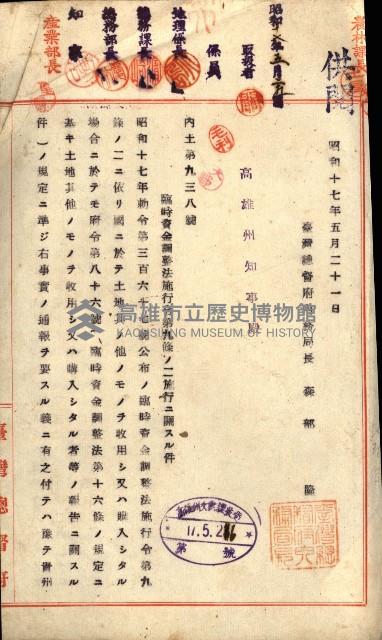 農村課長
供閲
昭和十七年五月二十一日
臺灣總督府財務局長 森部 隆
高雄州知事殿
內土第九三八號
臨時資金調整法施行令第九條ノ二施行ニ關スル件
昭和十七年勅令第三百六十號公布ノ臨時資金調整法施行令第九
條ノ二ニ依リ國ニ於テ土地其ノ他ノモノヲ收用シ又ハ購入シタル
場合ニ於テモ府令第八十六號(臨時資金調整法第十六條ノ規定ニ
基キ土地其他ノモノヲ收用シ又ハ購入シタル者等ノ報告ニ關スル
件)ノ規定ニ準ジ右事實ノ通報ヲ要スル義ニ有之付テハ豫テ貴州
昭和 年五月 日
取扱者
係員
地理係長
總務課長
總務部長
知事
產業部長
17.5.2
第 號
臺灣總督府
高雄市立歷史博物館
KAOHSIUNG MUSEUM OF HISTORY